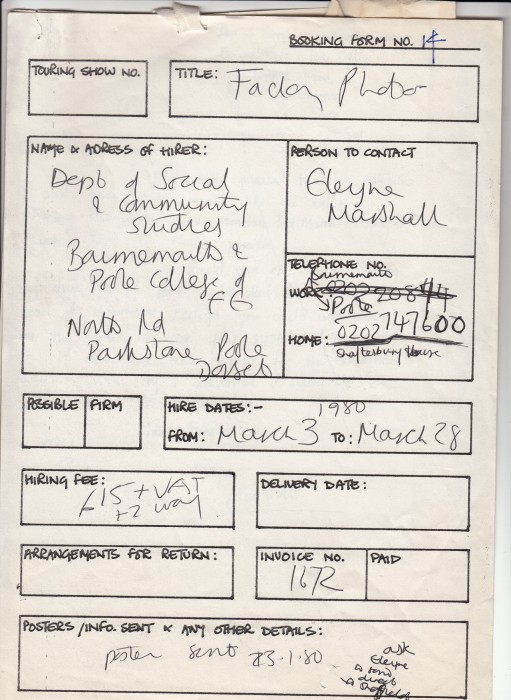 BOOKING FORM NO. 14
TOURING SHOW NO.
TITLE: Factory Photos
NAME & ADRESS OF HIRER:
Dept of Social
& Community
Studies
Bournemouth &
Poole College of
FE
North Rd
Parkstone Poole
Dorset
PERSON TO CONTACT
Eleyne
Marshall
TELEPHONE NO.
Bournemouth
WORK: 0202 20844
Poole
HOME: 0202 747600
Shaftesbury House
POSSIBLE FIRM
HIRE DATES:- 1980
FROM: March 3 TO: March 28
HIRING FEE:
£15 + VAT
+ 2 way
DELIVERY DATE:
ARRANGEMENTS FOR RETURN:
INVOICE NO.
1672
PAID
POSTERS/INFO. SENT & ANY OTHER DETAILS:
poster sent 23.1.80
ask
Eleyne
to send
direct